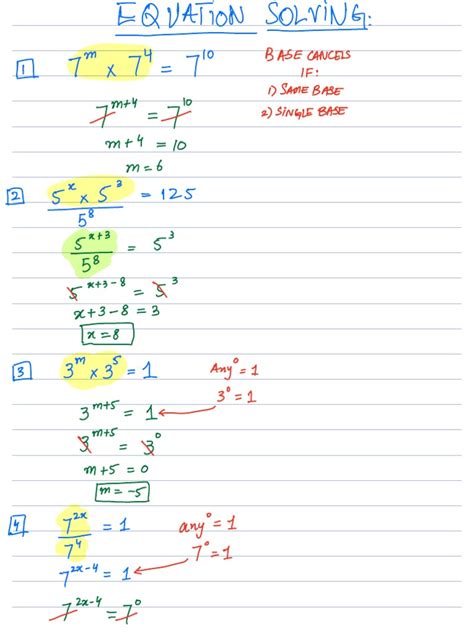 EQUATION SOLVING:
1 7^m × 7^4 = 7^10
BASE CANCELS
IF:
1) SAME BASE
2) SINGLE BASE
7^(m+4) = 7^10
m+4 = 10
m=6
2 (5^x × 5^3)/5^8 = 125
5^(x+3)/5^8 = 5^3
5^(x+3-8) = 5^3
x+3-8 = 3
x=8
3 3^m × 3^5 = 1
Any^0 = 1
3^0 = 1
3^(m+5) = 1
3^(m+5) = 3^0
m+5 = 0
m= -5
4 7^(2x)/7^4 = 1
any^0 = 1
7^0 = 1
7^(2x-4) = 1
7^(2x-4) = 7^0